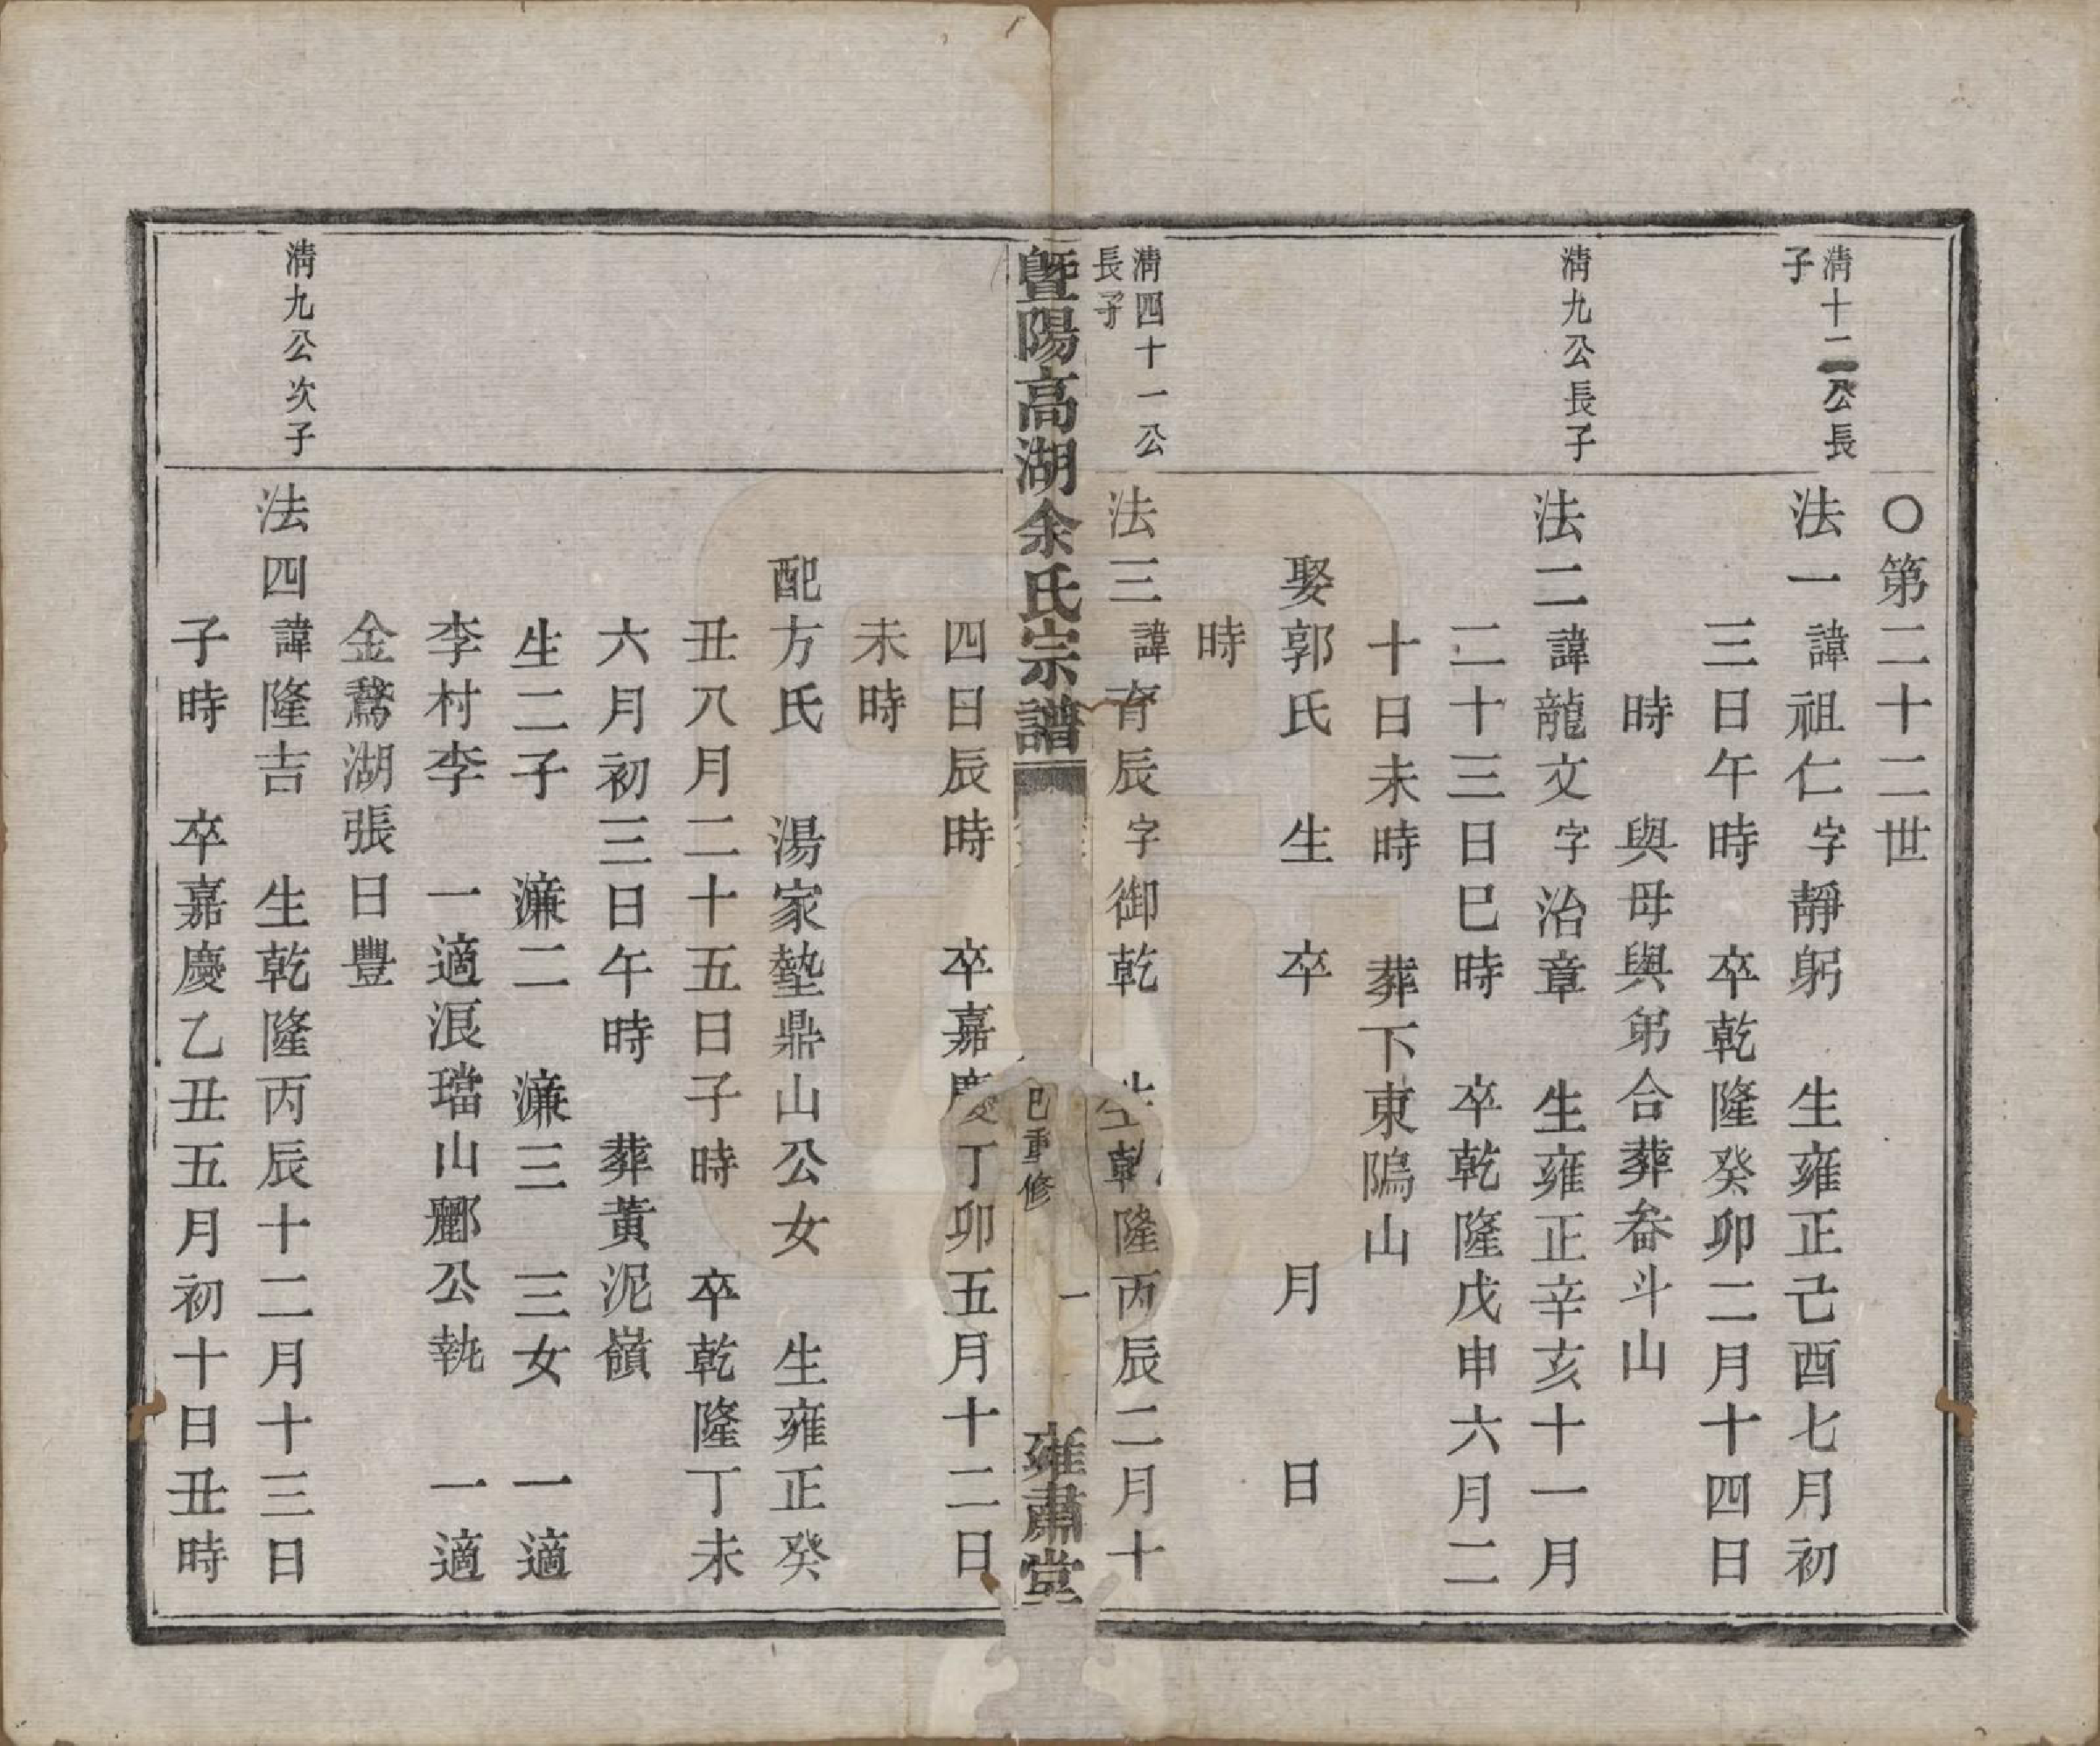 〇第二十二世
淸十二公長
子
法一諱祖仁字靜躬　生雍正己酉七月初
三日午時　卒乾隆癸卯二月十四日
時　與母與弟合葬畚斗山
淸九公長子
法二諱龍文字治章　生雍正辛亥十一月
二十三日巳時　卒乾隆戊申六月二
十日未時　葬下東隝山
娶郭氏　生　卒　　　　月　　日
時
淸四十一公
長子
法三諱育辰字御乾　生乾隆丙辰二月十
暨陽高湖余氏宗譜　巳重修　一　雍肅堂
四日辰時　卒嘉慶丁卯五月十二日
未時
配方氏　湯家墊鼎山公女　生雍正癸
丑八月二十五日子時　卒乾隆丁未
六月初三日午時　葬黃泥嶺
生二子　濂二　濂三　三女　一適
李村李　一適浪璫山酈公執　一適
金鶩湖張日豐
淸九公次子
法四諱隆吉　生乾隆丙辰十二月十三日
子時　卒嘉慶乙丑五月初十日丑時